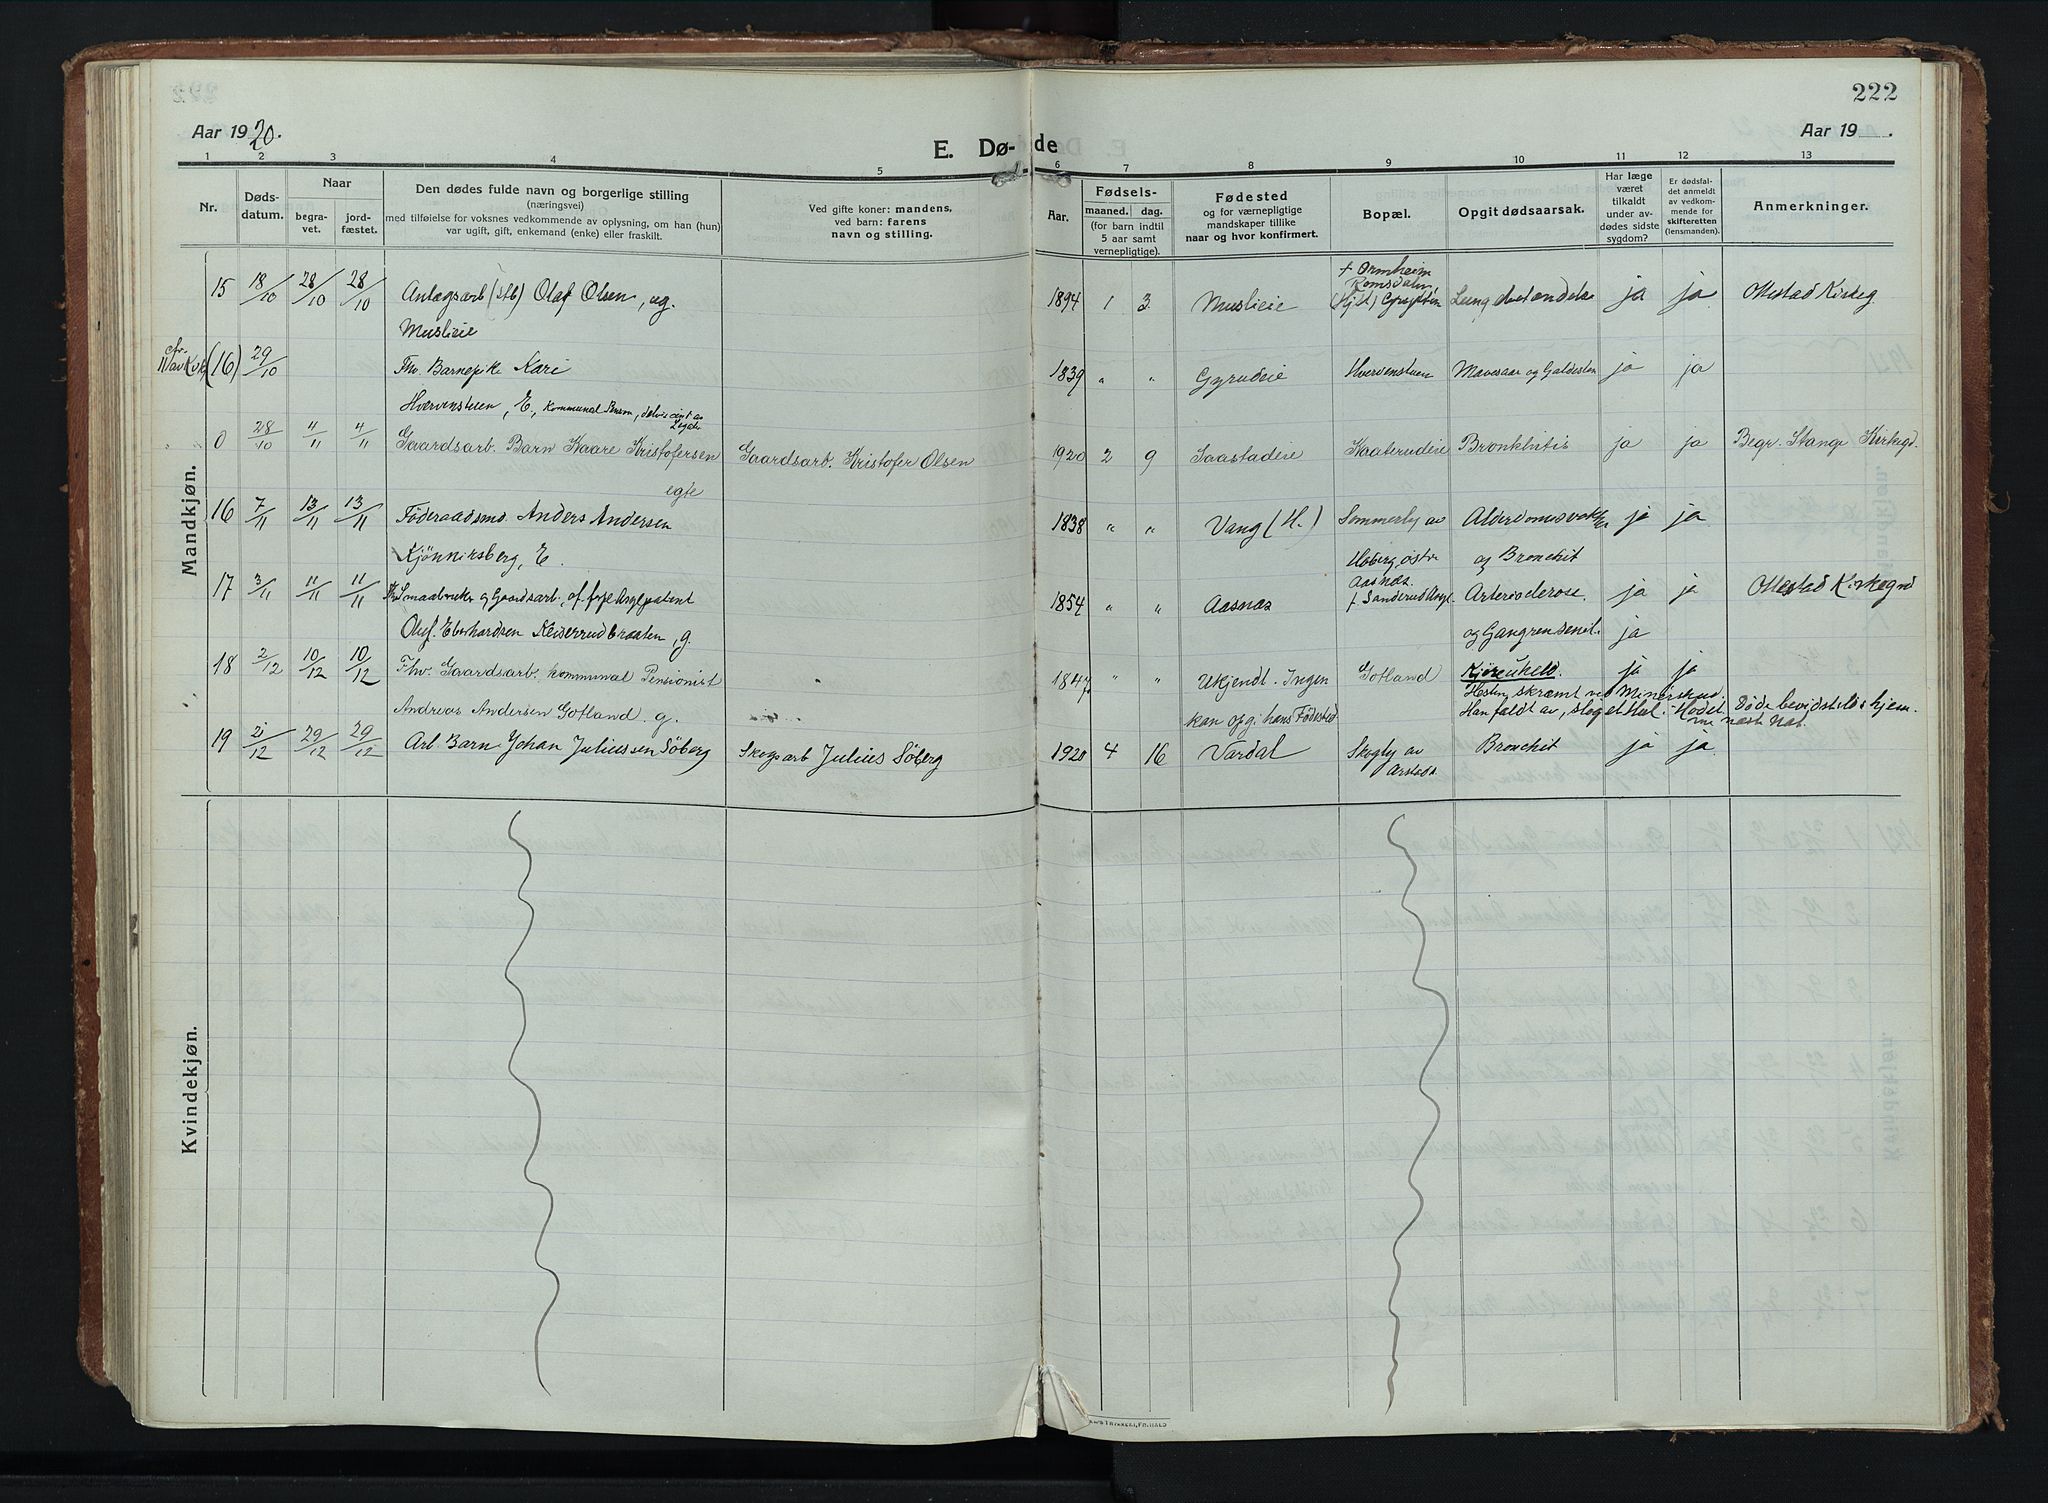 222
Aar 1920.
Aar 19
E. Dø-
de
1 2 3 4 5 6 7 8 9 10 11 12 13
Nr.
Døds-
datum.
Naar
begra-
vet.
jord-
fæstet.
Den dødes fulde navn og borgerlige stilling
(næringsvei)
med tilføielse for voksnes vedkommende av oplysning, om han (hun)
var ugift, gift, enkemand (enke) eller fraskilt.
Ved gifte koner: mandens,
ved barn: farens
navn og stilling.
Aar.
Fødsels-
maaned. dag.
(for barn indtil
5 aar samt
vernepligtige).
Fødested
og for værnepligtige
mandskaper tillike
naar og hvor konfirmert.
Bopæl.
Opgit dødsaarsak.
Har læge
været
tilkaldt
under av-
dødes sidste
sygdom?
Er dødsfal-
det anmeldt
av vedkom-
mende for
skifteretten
(lensmanden).
Anmerkninger.
Mandkjøn.
15 18/10 28/10 28/10 Anlægsarb. Olaf Olsen, ug.
Muslieie
1894 1 3 Muslieie
+ Ormheim,
Romsdalen,
Lungebetændelse ja ja Ottestad Kirkeg.
(16) 29/10 Fhv. Barnepike Kari
Hvervenstuen, E,
1839 " " Gyrudeie Hvervenstuen Mavesaar og Galdesten ja ja
0 28/10 4/11 4/11 Gaardsarb. Barn Kaare Kristofersen
egte
Gaardsarb. Kristofer Olsen 1920 2 9 Saastadeie Kaaterudeie Bronkhitis ja ja Begr. Stange Kirkegd.
16 7/11 13/11 13/11 Föderaadsmd. Anders Andersen
Kjönnirsberg, E.
1838 " " Vang (H.) Sommerby av
Hoberg, østre
Aasnæs.
Alderdomssvækk.
og Bronchit ja ja
17 3/11 11/11 11/11 Smaabruker og Gaardsarb.,
Oluf Eberhardsen Keiserudbraaten, g.
1854 " " Aasnæs + Sanderud Asyl. Arteriosclerose,
og Gangren senil. ja ja Ottestad Kirkegrd
ja
18 2/12 10/12 10/12 Fhv. Gaardsarb. kommunal Pensionist
Andreas Andersen Gotland. g.
1847 " " Ukjendt. Ingen
kan opgi hans Fødested
Gotland Kjöreuheld. ja ja
Hesten skræmt ved Mineskud.
Han faldt av, slog et Hul i Hodet. Döde bevidstlös hjem-
me næste Nat.
19 21/12 29/12 29/12 Arb. Barn Johan Juliussen Söberg
Skogsarb Julius Söberg 1920 4 16 Vardal Skogly av
Arstads. Bronchit ja ja
Kvindekjøn.